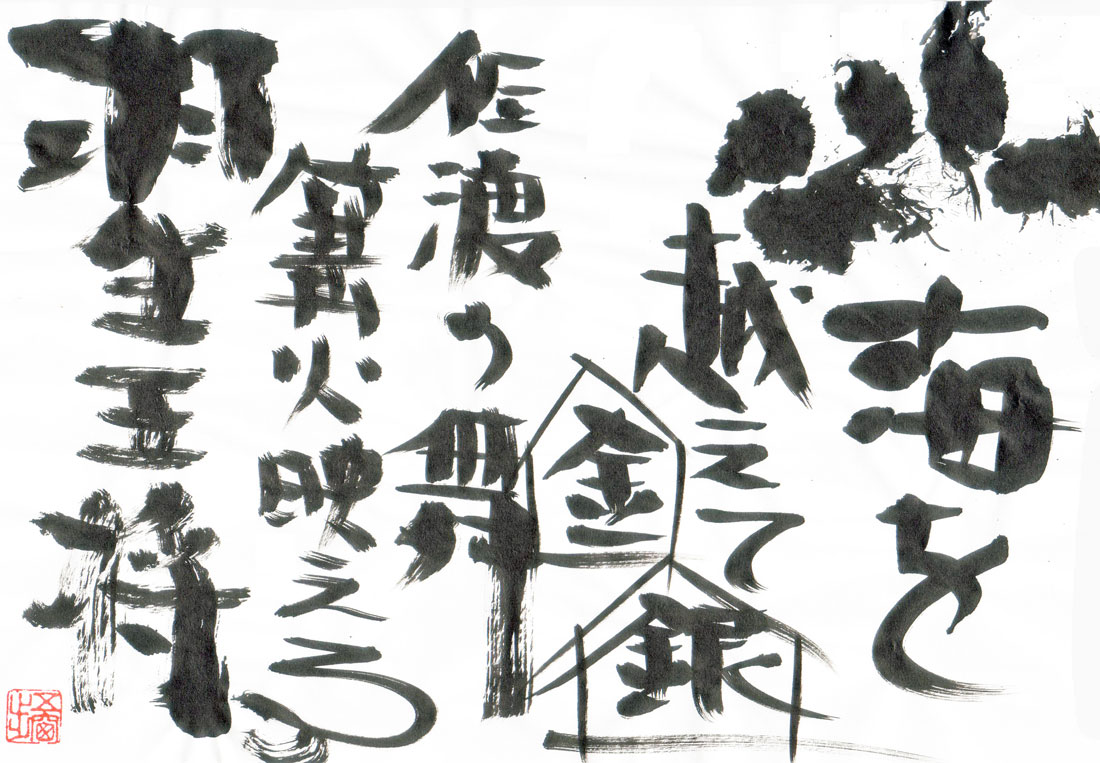 海を
越えて
金
銀
佐渡の舞
篝火映える
羽生王将